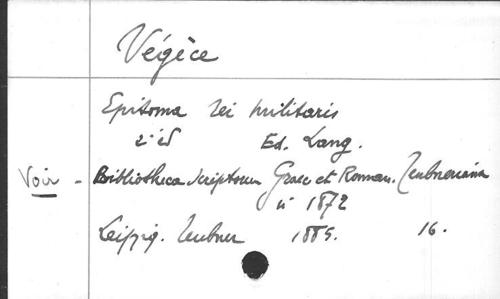 Végèce
Epitoma rei militaris
2e éd Ed. Lang.
Voir - Bibliotheca scriptorum Graec et Roman. Teubneriana
n° 1872
Leipzig. Teubner 1885. 16.